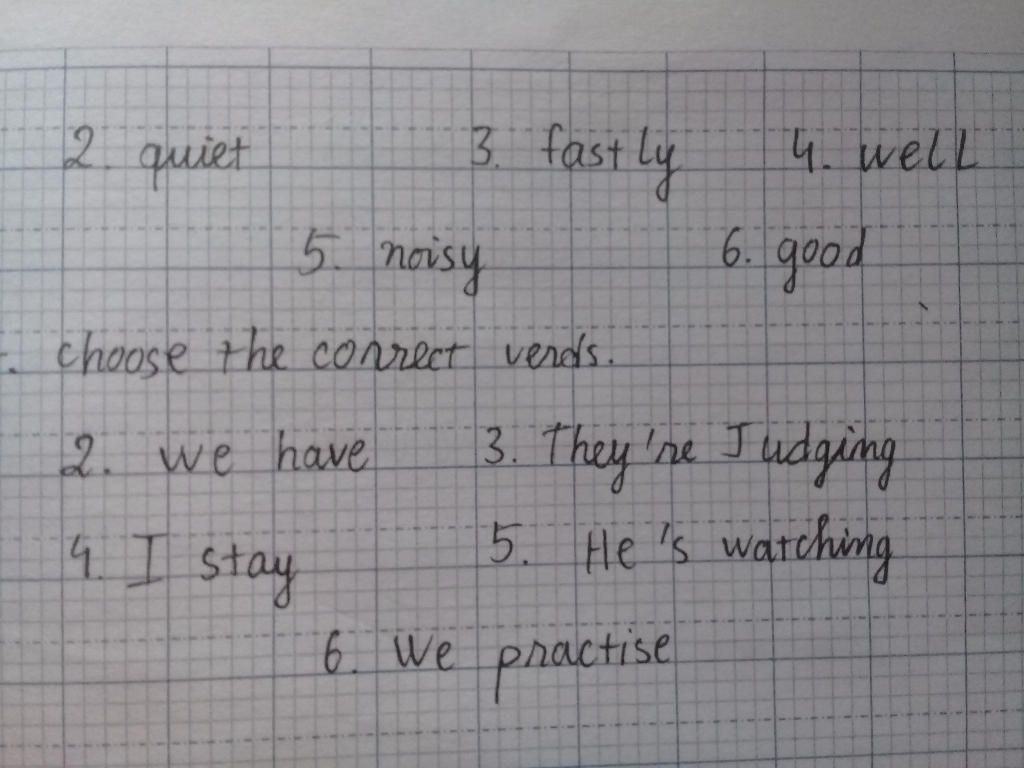 2. quiet 3. fastly 4. well
5. noisy 6. good
. choose the correct verds.
2. we have 3. They're Judging
4. I stay 5. He's watching
6. We practise